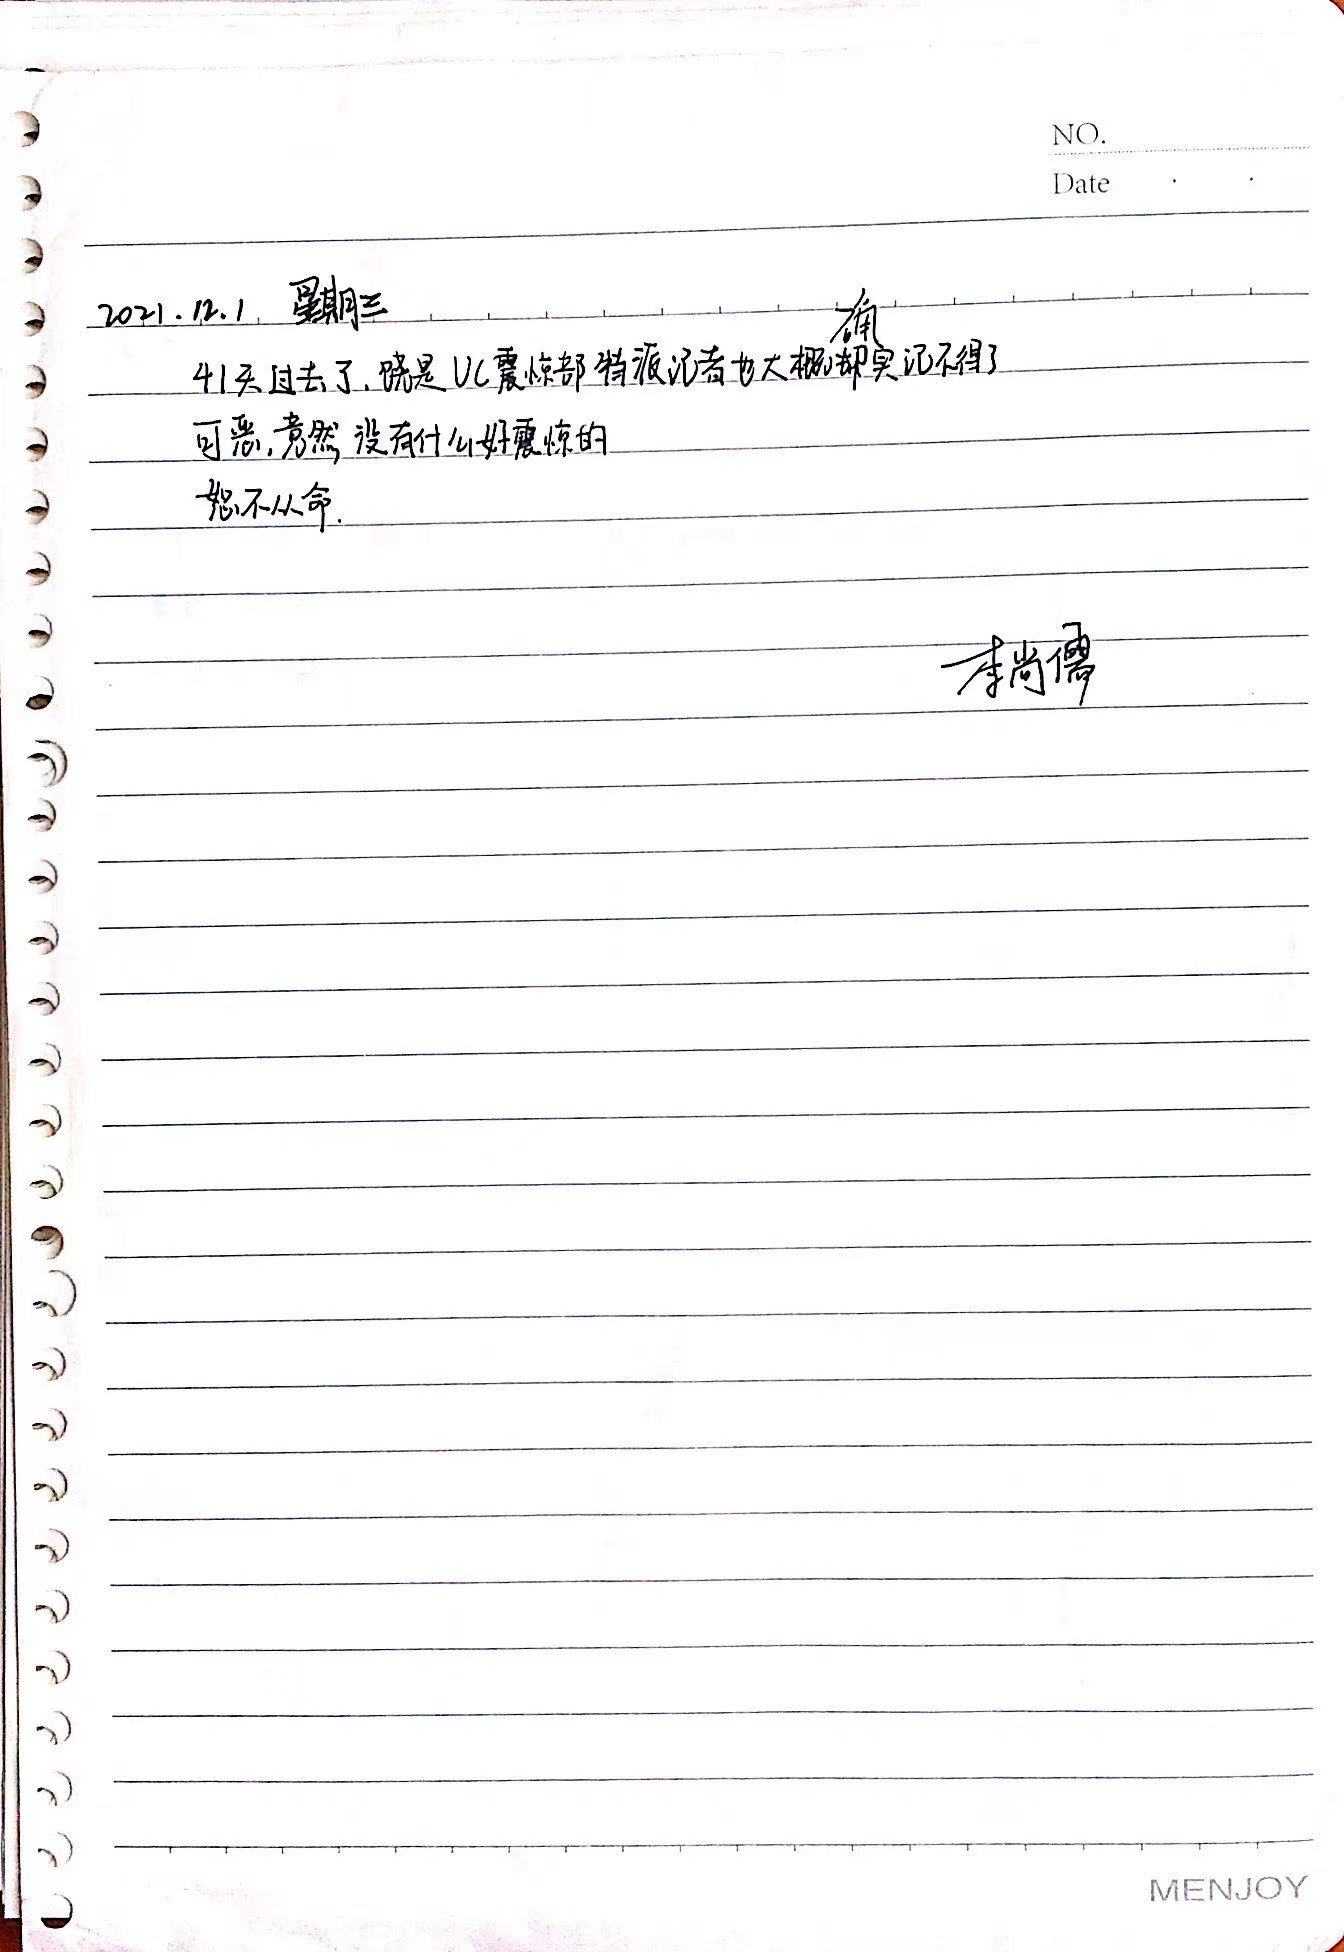 NO.
Date
2021.12.1 星期三
确
41天过去了,饶是UC震惊部特派记者也大概却实记不得了
可恶,竟然没有什么好震惊的
恕不从命.
李尚儒
MENJOY